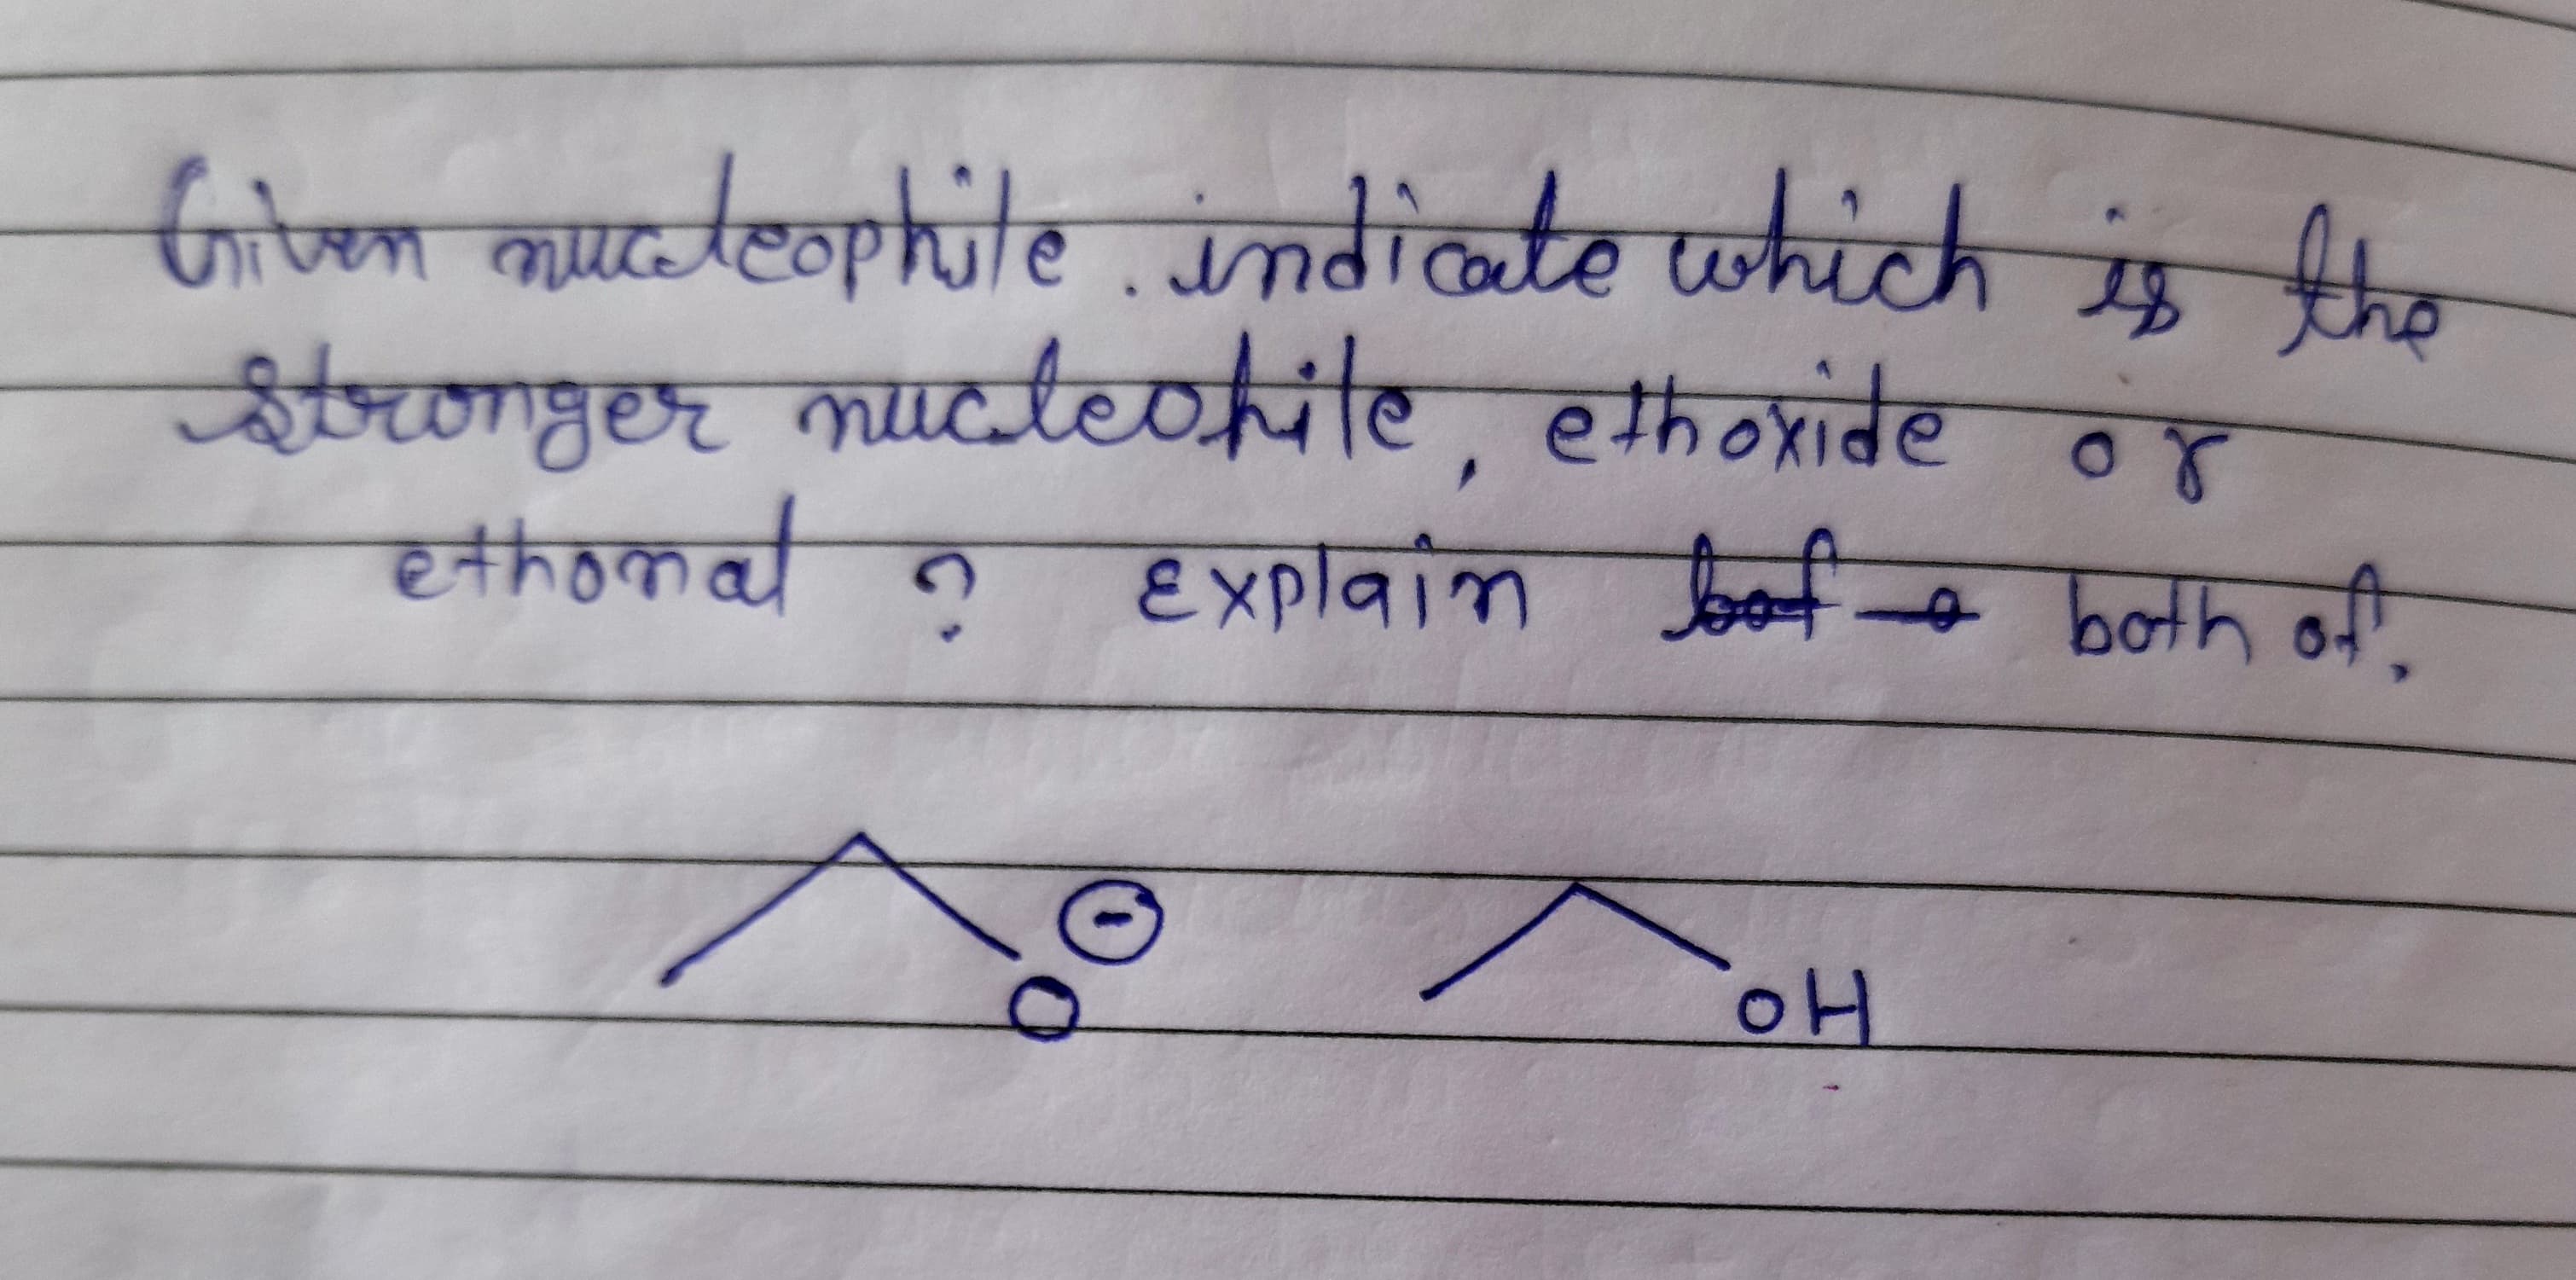 Given nucleophile. indicate which is the
stronger nucleohile, ethoxide or
ethonal ? Explain both of.
⊖
O OH